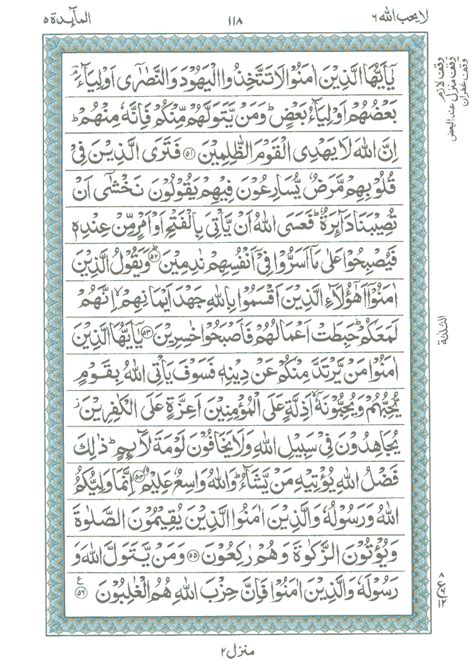 لا یحب الله ٦
١١٨
المآئدة ٥
يٰٓاَيُّهَا الَّذِيْنَ اٰمَنُوْا لَا تَتَّخِذُوا الْيَهُوْدَ وَالنَّصٰرٰٓى اَوْلِيَآءَ ۘ
بَعْضُهُمْ اَوْلِيَآءُ بَعْضٍ ؕ وَمَنْ يَّتَوَلَّهُمْ مِّنْكُمْ فَاِنَّهٗ مِنْهُمْ ؕ
اِنَّ اللّٰهَ لَا يَهْدِى الْقَوْمَ الظّٰلِمِيْنَ ﴿٥١﴾ فَتَرَى الَّذِيْنَ فِيْ
قُلُوْبِهِمْ مَّرَضٌ يُّسَارِعُوْنَ فِيْهِمْ يَقُوْلُوْنَ نَخْشٰٓى اَنْ
تُصِيْبَنَا دَآئِرَةٌ ؕ فَعَسَى اللّٰهُ اَنْ يَّاْتِيَ بِالْفَتْحِ اَوْ اَمْرٍ مِّنْ عِنْدِهٖ
فَيُصْبِحُوْا عَلٰى مَاۤ اَسَرُّوْا فِيْۤ اَنْفُسِهِمْ نٰدِمِيْنَ ﴿٥٢﴾ وَيَقُوْلُ الَّذِيْنَ
اٰمَنُوْۤا اَهٰٓؤُلَآءِ الَّذِيْنَ اَقْسَمُوْا بِاللّٰهِ جَهْدَ اَيْمَانِهِمْ ۙ اِنَّهُمْ
لَمَعَكُمْ ؕ حَبِطَتْ اَعْمَالُهُمْ فَاَصْبَحُوْا خٰسِرِيْنَ ﴿٥٣﴾ يٰٓاَيُّهَا الَّذِيْنَ
اٰمَنُوْا مَنْ يَّرْتَدَّ مِنْكُمْ عَنْ دِيْنِهٖ فَسَوْفَ يَاْتِى اللّٰهُ بِقَوْمٍ
يُّحِبُّهُمْ وَيُحِبُّوْنَهٗۤ ۙ اَذِلَّةٍ عَلَى الْمُؤْمِنِيْنَ اَعِزَّةٍ عَلَى الْكٰفِرِيْنَ ؗ
يُجَاهِدُوْنَ فِيْ سَبِيْلِ اللّٰهِ وَلَا يَخَافُوْنَ لَوْمَةَ لَآئِمٍ ؕ ذٰلِكَ
فَضْلُ اللّٰهِ يُؤْتِيْهِ مَنْ يَّشَآءُ ؕ وَاللّٰهُ وَاسِعٌ عَلِيْمٌ ﴿٥٤﴾ اِنَّمَا وَلِيُّكُمُ
اللّٰهُ وَرَسُوْلُهٗ وَالَّذِيْنَ اٰمَنُوا الَّذِيْنَ يُقِيْمُوْنَ الصَّلٰوةَ
وَيُؤْتُوْنَ الزَّكٰوةَ وَهُمْ رٰكِعُوْنَ ﴿٥٥﴾ وَمَنْ يَّتَوَلَّ اللّٰهَ وَ
رَسُوْلَهٗ وَالَّذِيْنَ اٰمَنُوْا فَاِنَّ حِزْبَ اللّٰهِ هُمُ الْغٰلِبُوْنَ ﴿٥٦﴾ ع
وقف لازم
وقف منزل عند البعض
وقف غفران
ع
١٢
منزل ٢